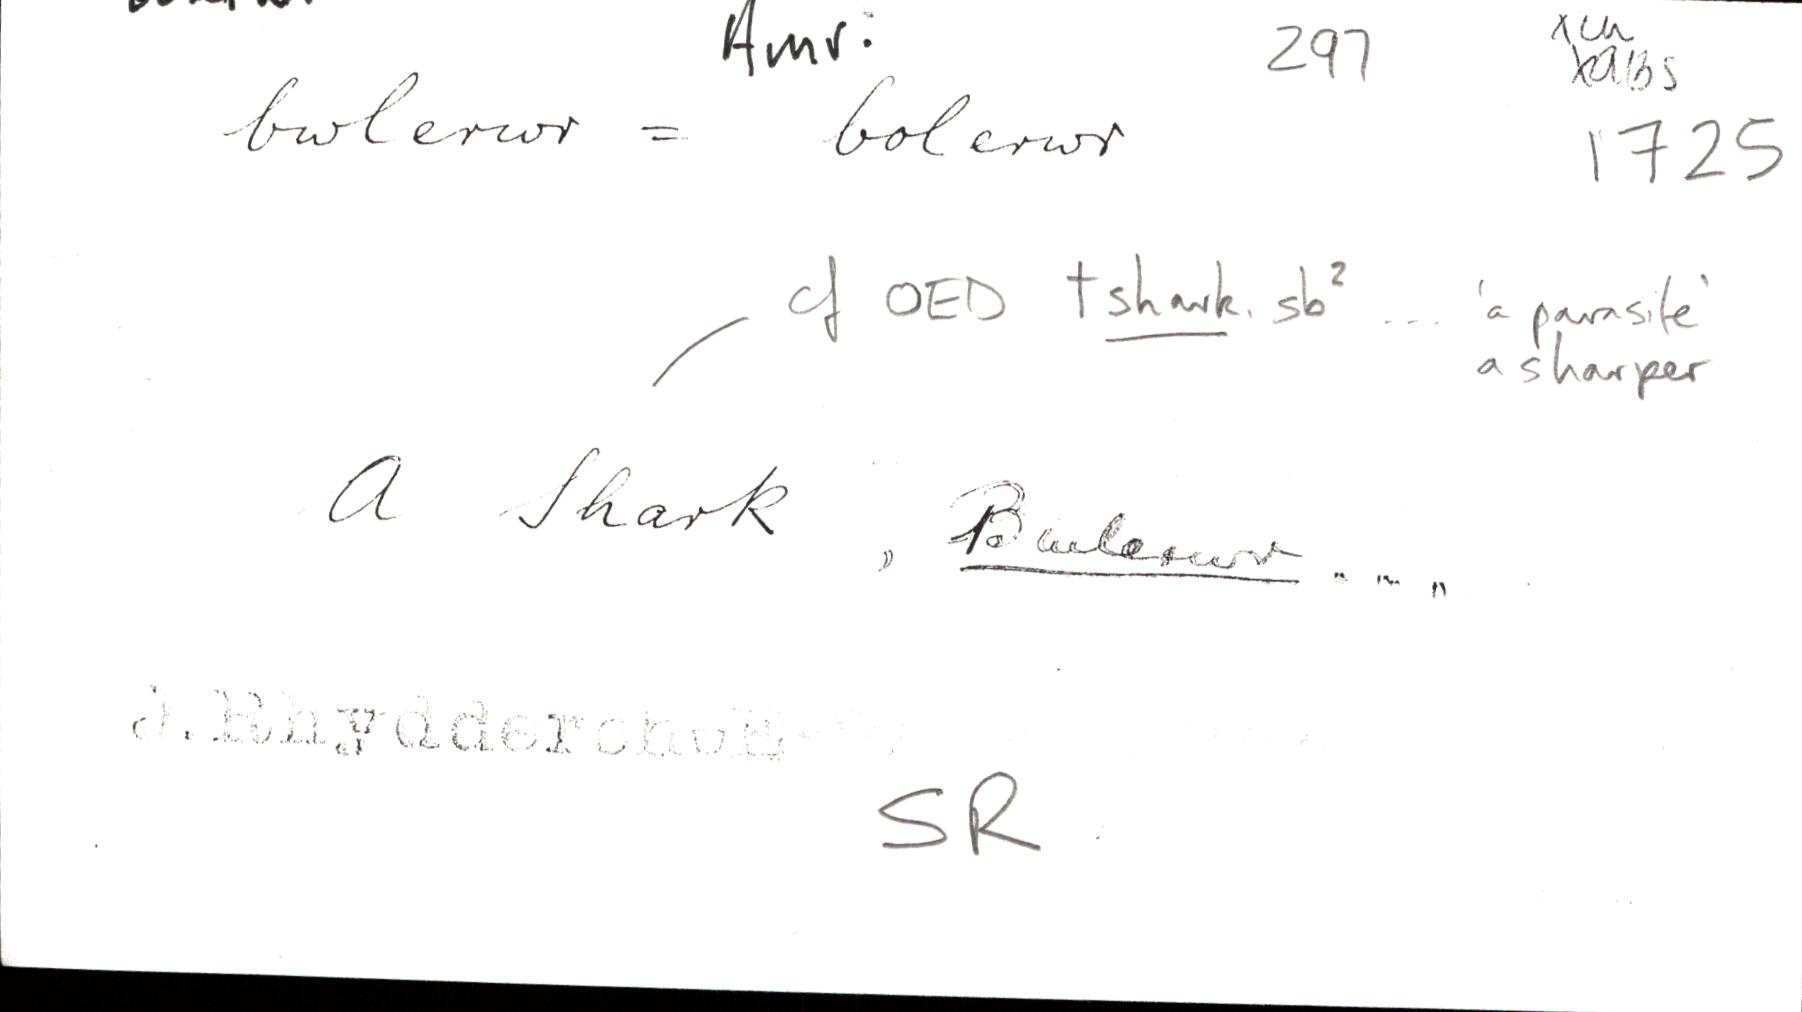 Amr: 297
1725
bwlerwr = bolerwr
cf OED †shark. sb² ... 'a parasite'
a sharper
A Shark, Bwlerwr....,,
J.Rhydderch:E
SR